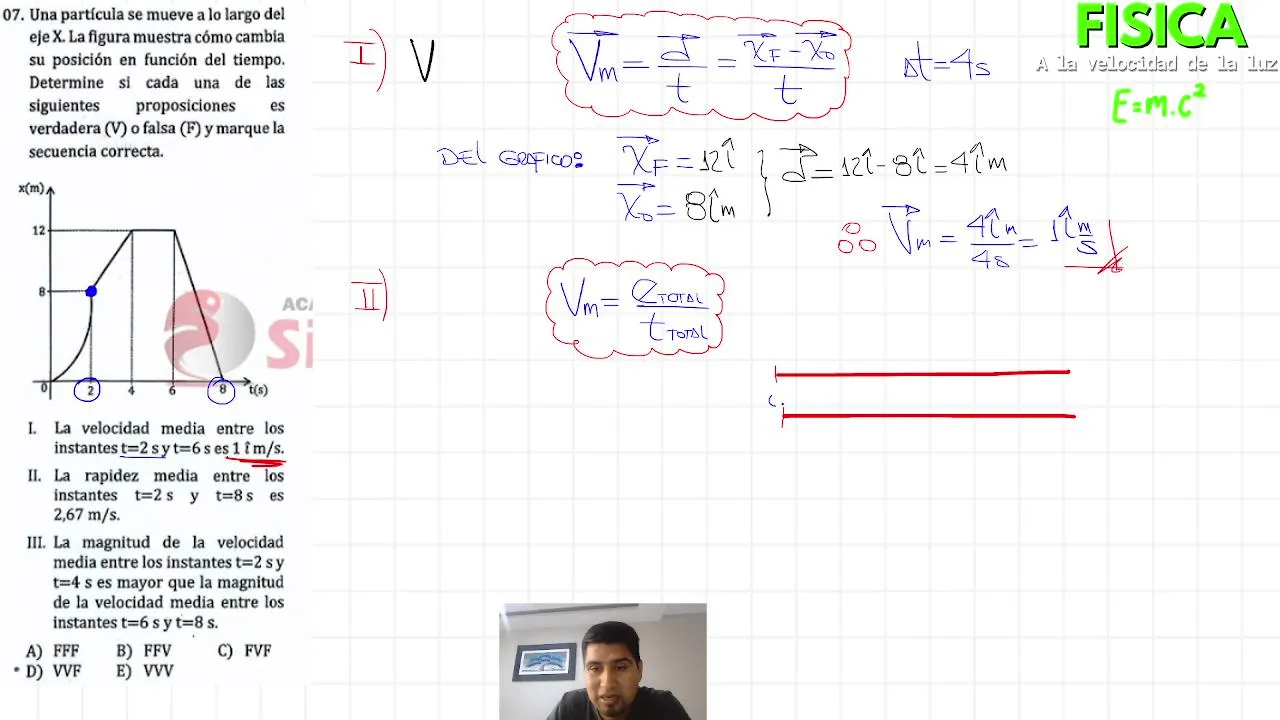 07. Una partícula se mueve a lo largo del
eje X. La figura muestra cómo cambia
su posición en función del tiempo.
Determine si cada una de las
siguientes proposiciones es
verdadera (V) o falsa (F) y marque la
secuencia correcta.
x(m)
12
8
0 2 4 6 8 t(s)
ACA
Si
I. La velocidad media entre los
instantes t=2 s y t=6 s es 1 î m/s.
II. La rapidez media entre los
instantes t=2 s y t=8 s es
2,67 m/s.
III. La magnitud de la velocidad
media entre los instantes t=2 s y
t=4 s es mayor que la magnitud
de la velocidad media entre los
instantes t=6 s y t=8 s.
A) FFF B) FFV C) FVF
* D) VVF E) VVV
I) V
V⃗m = d⃗/t = (x⃗F − x⃗o)/t
Δt=4s
DEL GRAFICO:
x⃗F = 12î
x⃗o = 8îm
} d⃗ = 12î − 8î = 4îm
∴ V⃗m = 4îm/4s = 1î m/s
II)
Vm = eTOTAL/tTOTAL
FISICA
A la velocidad de la luz
E=m.c²